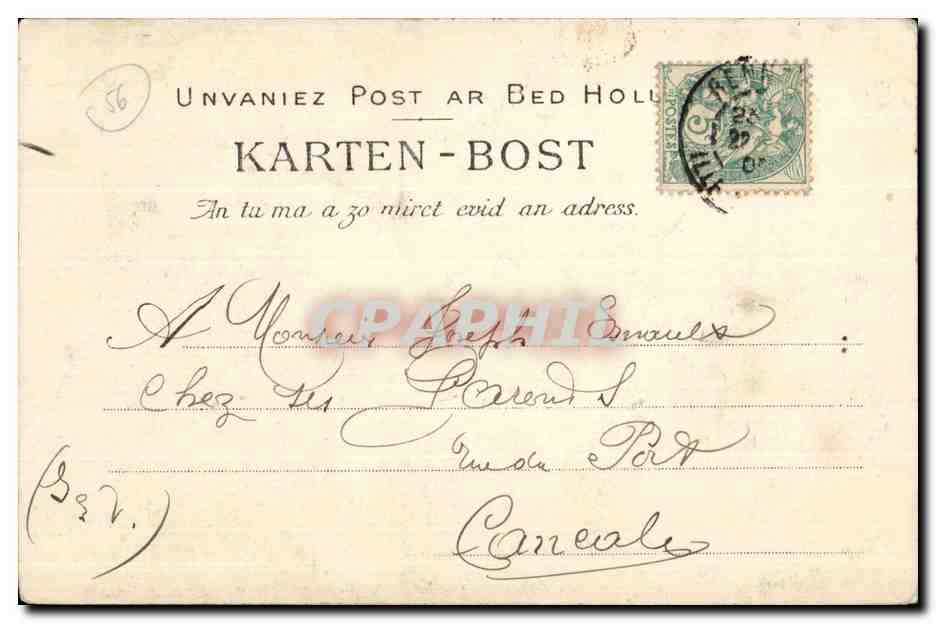 56
UNVANIEZ POST AR BED HOLL
KARTEN-BOST
An tu ma a zo miret evid an adress.
POSTES
5
RENN
22
CPAPHIL
A Monsieur Joseph Enault
Chez ses Parents
rue du Port
Cancale
(I & V.)